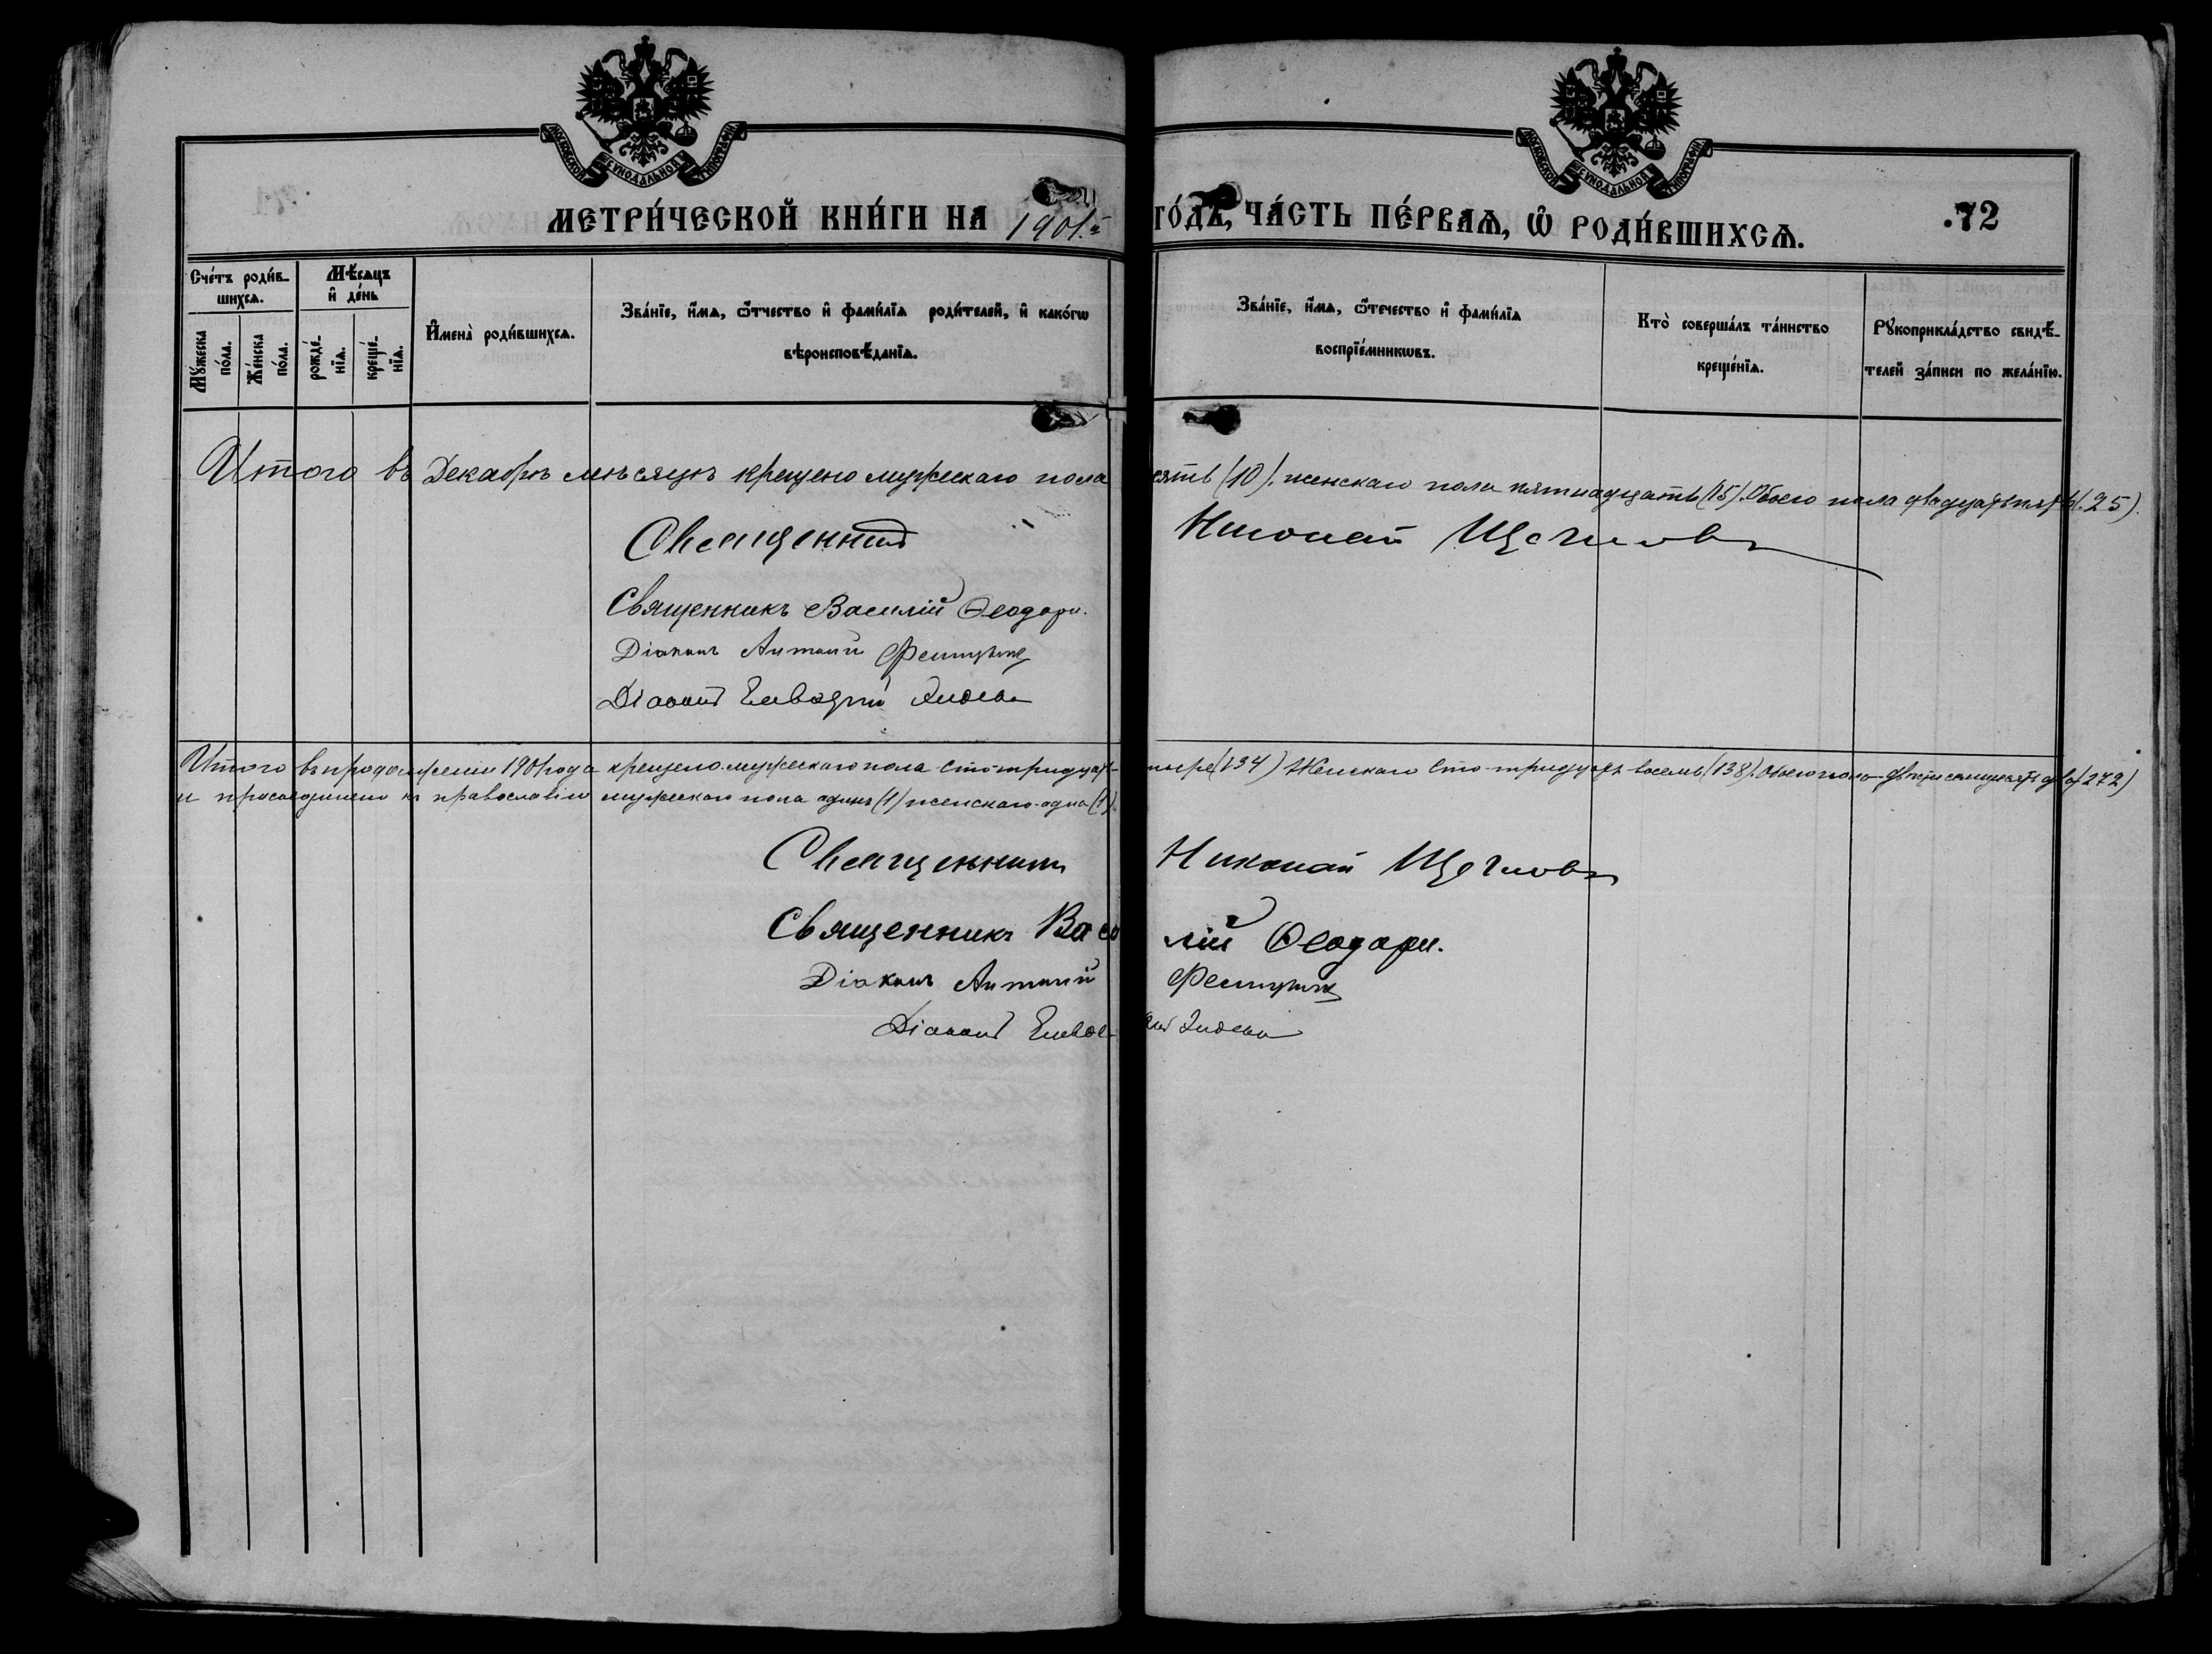 МОСКОВСКОЙ СѴНОДАЛЬНОЙ ТИПОГРАФІИ
МОСКОВСКОЙ СѴНОДАЛЬНОЙ ТИПОГРАФІИ
МЕТРИ́ЧЕСКОЙ КНИ́ГИ НА 1901.й ГО́ДЪ, ЧА́СТЬ ПЕ́РВАѦ, Ѡ҆ РОДИ́ВШИХСѦ.
72
Сче́тъ роди́в-
шихсѧ.
Мѣ́сяцъ
и҆ де́нь
Мꙋ́жеска по́ла.
Же́нска по́ла.
рожде́-нїѧ.
креще́-нїѧ.
И҆мена̀ роди́вшихсѧ.
Зва́нїе, и҆́мѧ, ѻ҆́тчество и҆ фами́лїѧ роди́телей, и҆ како́гѡ
вѣроисповѣ́данїѧ.
Зва́нїе, и҆́мѧ, ѻ҆́течество и҆ фами́лїѧ
воспрїе́мникѡвъ.
Кто̀ соверша́лъ та́инство
креще́нїѧ.
Рꙋкоприкла́дство свидѣ́-
телей за́писи по жела́нїю.
Итого въ Декабрѣ мѣсяцѣ крещено мужескаго пола сять (10). женскаго пола пятнадцать (15). Обоего пола двадцать пять (25).
Священникъ Николай Щегловъ
Священникъ Василій Ѳеодори.
Діаконъ Антоній
Діаконъ
Итого въ продолженіи 1901 года крещено мужескаго пола сто тридцать тыре (134) Женскаго Сто-тридцать восемь (138). Обоего пола двѣсти семьдесятъ два (272)
и присоединено къ православію мужескаго пола одинъ (1) женскаго-одна (1).
Священникъ Николай Щегловъ
Священникъ Василій Ѳеодори.
Діаконъ Антоній
Діаконъ